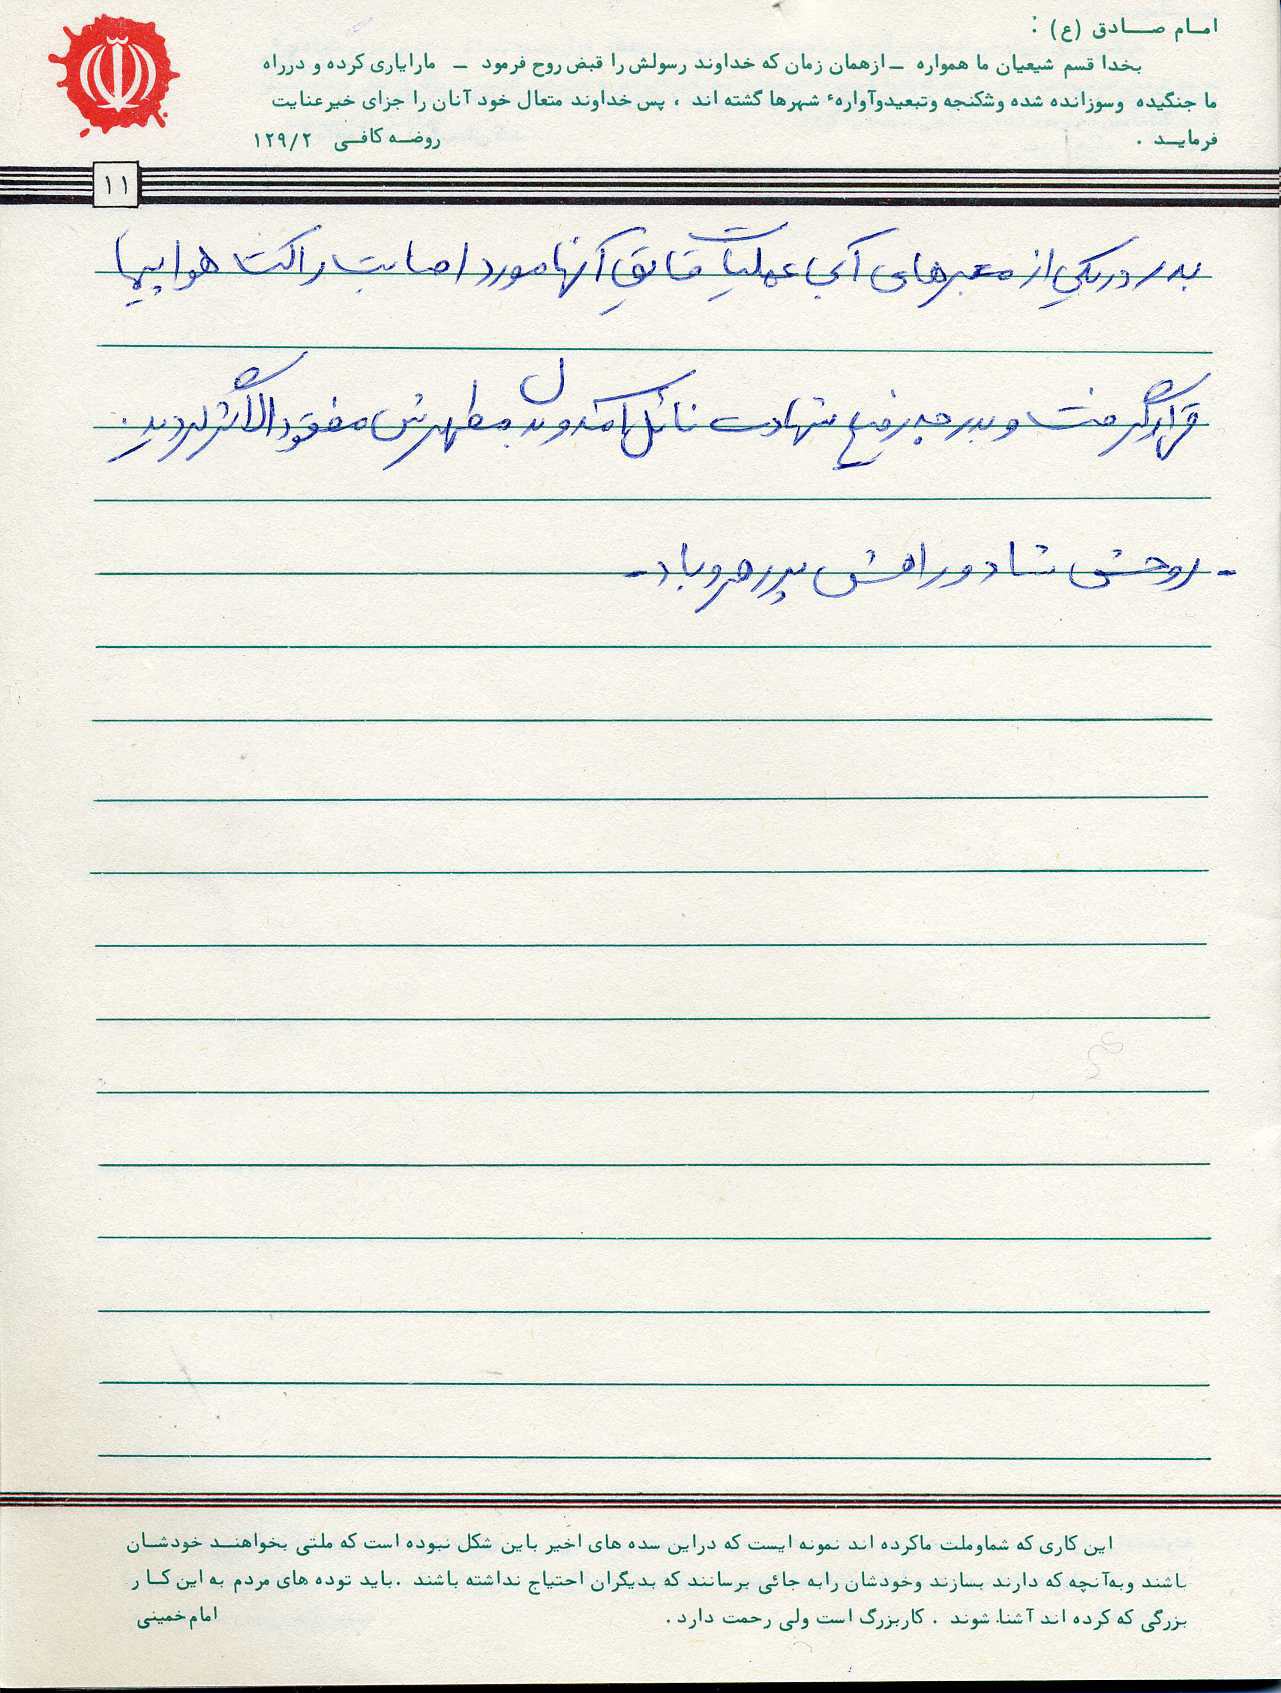 امام صادق (ع) :
بخدا قسم شیعیان ما همواره ــ ازهمان زمان که خداوند رسولش را قبض روح فرمود ــ مارایاری کرده و درراه
ما جنگیده وسوزانده شده وشکنجه وتبعیدوآوارهٔ شهرها گشته اند ، پس خداوند متعال خود آنان را جزای خیرعنایت
فرمایـد .
روضـه کافـی ۱۲۹/۲
۱۱
بدر در یکی از معبرهای آبی عملیات قایق آنها مورد اصابت راکت هواپیما
قرار گرفت و بدرجه رفیع شهادت نائل آمد و بدن مطهرش مفقود الاثر گردید.
- روحش شاد و راهش پر رهرو باد -
این کاری که شماوملت ماکرده اند نمونه ایست که دراین سده های اخیر باین شکل نبوده است که ملتی بخواهنـد خودشـان
باشند وبه‌آنچه که دارند بسازند وخودشان رابه جائی برسانند که بدیگران احتیاج نداشته باشند .باید توده های مردم به این کـار
بزرگی که کرده اند آشنا شوند . کاربزرگ است ولی رحمت دارد .
امام خمینی